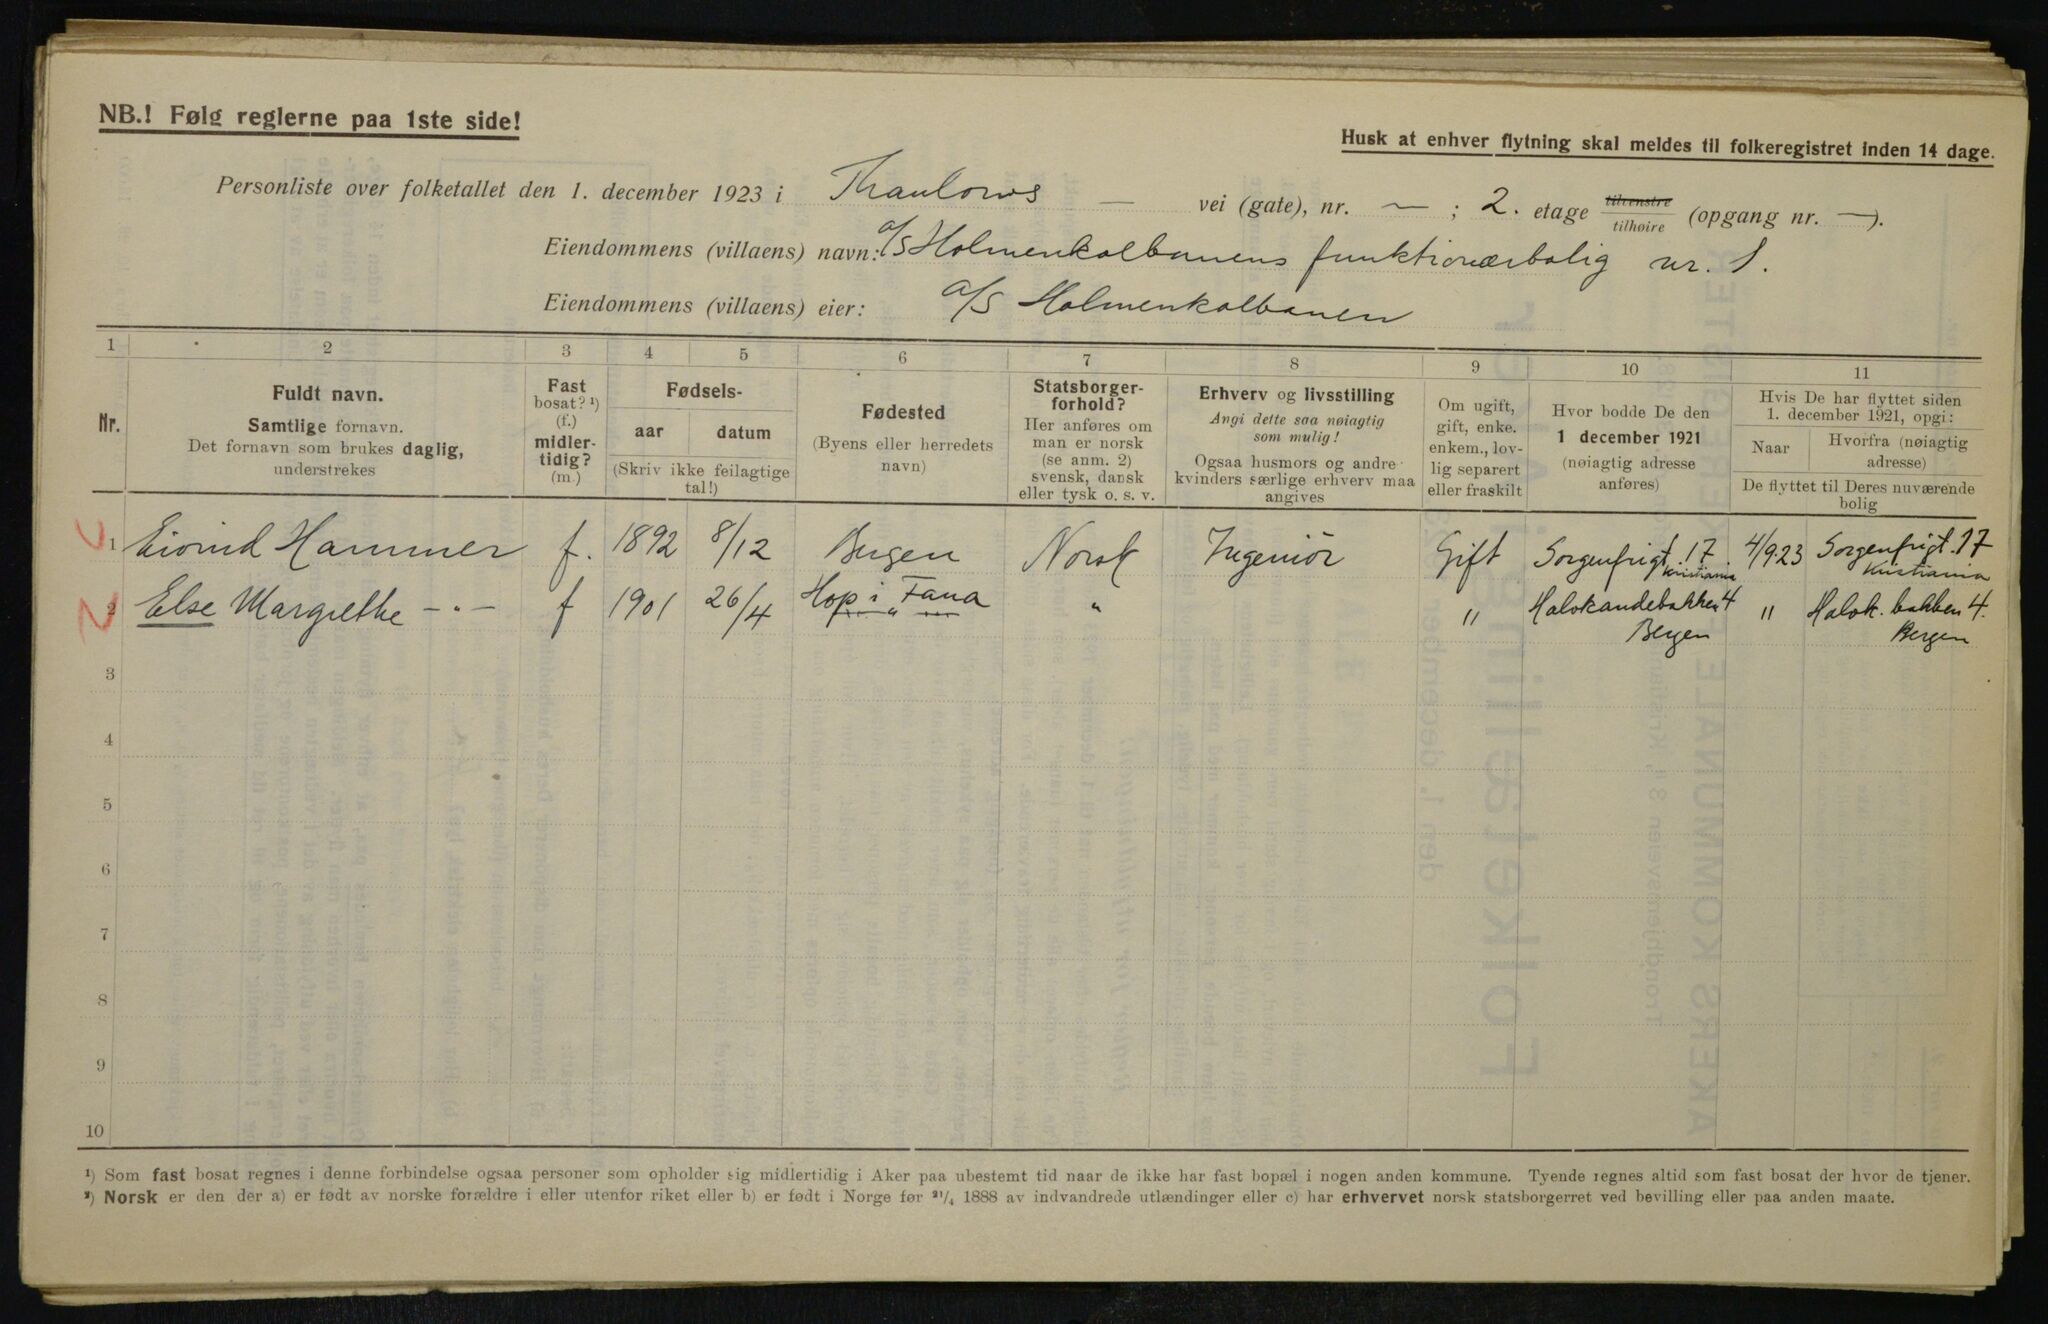 NB.! Følg reglerne paa 1ste side!
Husk at enhver flytning skal meldes til folkeregistret inden 14 dage.
Personliste over folketallet den 1. december 1923 i Thaulows — vei (gate), nr. — ; 2. etage tilvenstre tilhøire (opgang nr. —).
Eiendommens (villaens) navn: A/S Holmenkolbanens funktionærbolig nr. 1.
Eiendommens (villaens) eier: A/S Holmenkolbanen
1 2 3 4 5 6 7 8 9 10 11
Nr.
Fuldt navn.
Samtlige fornavn.
Det fornavn som brukes daglig,
understrekes
Fast
bosat? ¹)
(f.)
midler-
tidig?
(m.)
Fødsels-
aar datum
(Skriv ikke feilagtige
tal!)
Fødested
(Byens eller herredets
navn)
Statsborger-
forhold?
Her anføres om
man er norsk
(se anm. 2)
svensk, dansk
eller tysk o. s. v.
Erhverv og livsstilling
Angi dette saa nøiagtig
som mulig!
Ogsaa husmors og andre
kvinders særlige erhverv maa
angives
Om ugift,
gift, enke.
enkem., lov-
lig separert
eller fraskilt
Hvor bodde De den
1 december 1921
(nøiagtig adresse
anføres)
Hvis De har flyttet siden
1. december 1921, opgi:
Naar Hvorfra (nøiagtig
adresse)
De flyttet til Deres nuværende
bolig
1 Eivind Hammer f. 1892 8/12 Bergen Norsk Ingeniör Gift Sorgenfrigt. 17 Kristiania 4/9.23 Sorgenfrigt. 17 Kristiania
2 Else Margrethe -"- f 1901 26/4 Hop i Fana " " Halvkandebakken 4 Bergen " Halvk. bakken 4. Bergen
3
4
5
6
7
8
9
10
¹) Som fast bosat regnes i denne forbindelse ogsaa personer som opholder sig midlertidig i Aker paa ubestemt tid naar de ikke har fast bopæl i nogen anden kommune. Tyende regnes altid som fast bosat der hvor de tjener.
²) Norsk er den der a) er født av norske forældre i eller utenfor riket eller b) er født i Norge før ²¹/₄ 1888 av indvandrede utlændinger eller c) har erhvervet norsk statsborgerret ved bevilling eller paa anden maate.